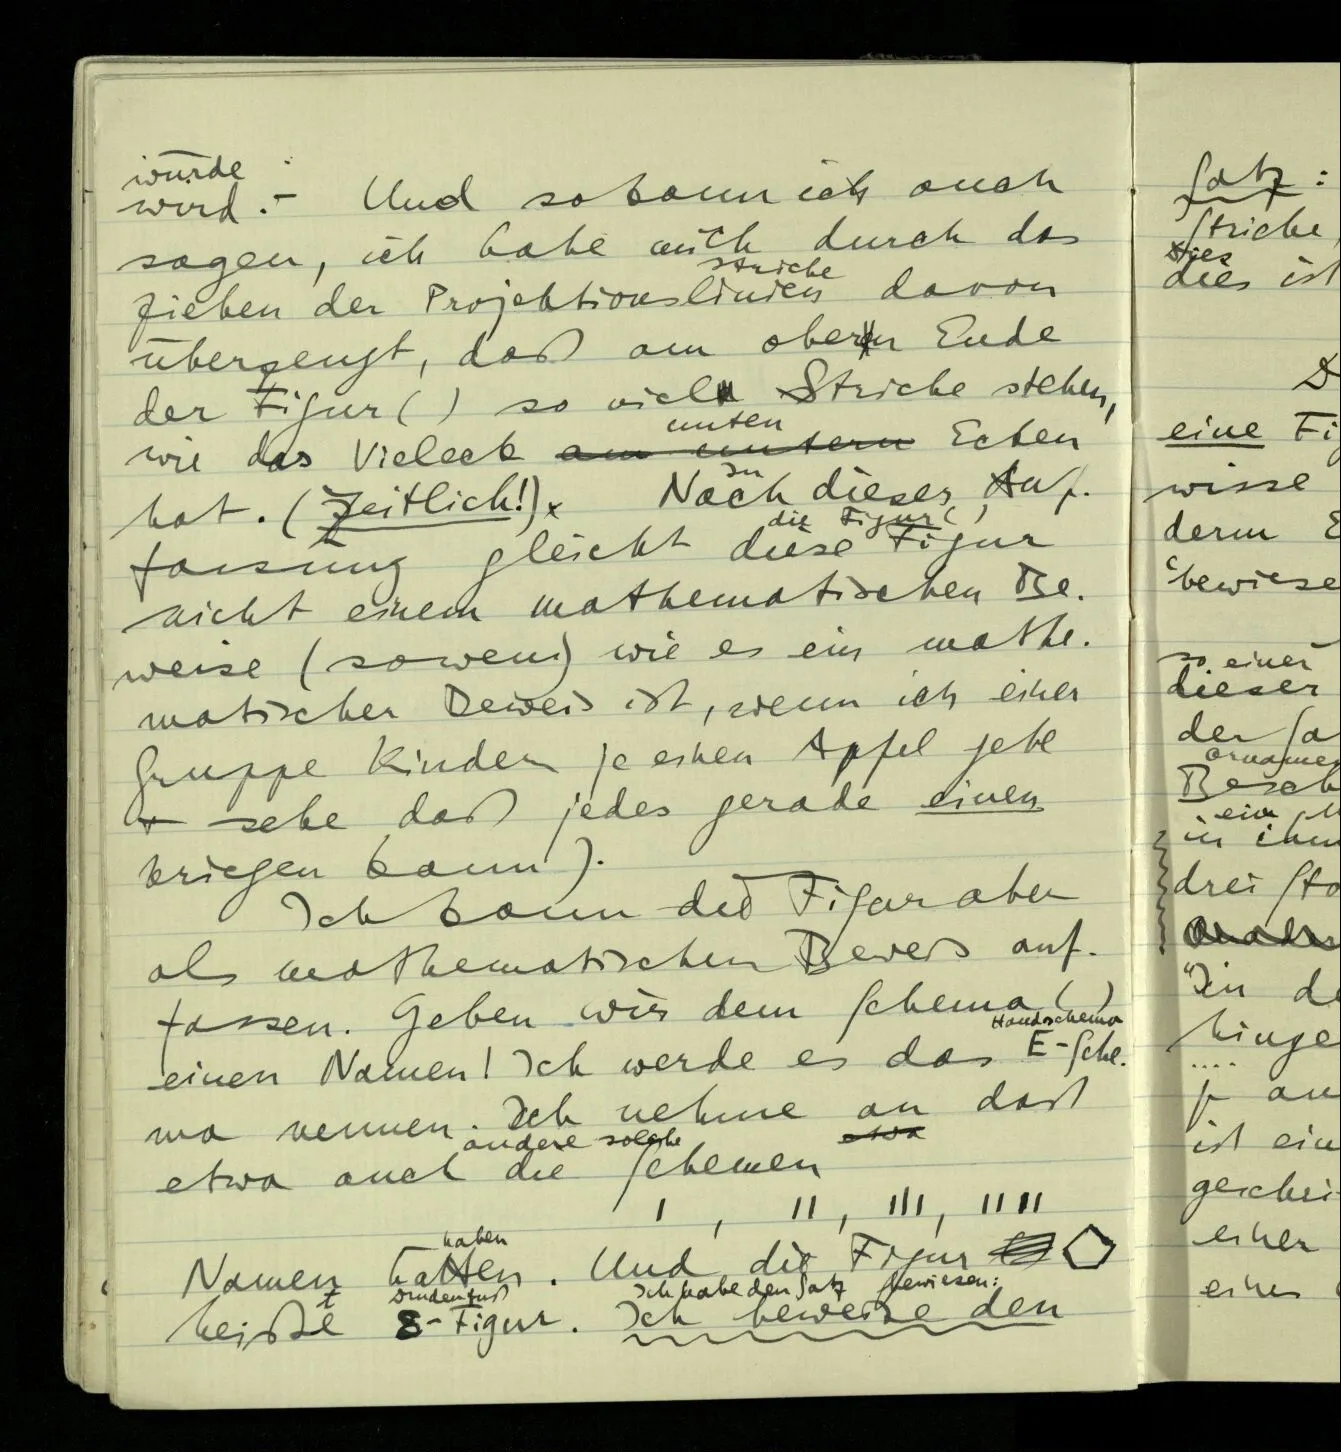 würde
wird. – Und so kann ich auch
sagen, ich habe mich durch das
striche
Ziehen der Projektionslinien davon
überzeugt, daß am obern Ende
der Figur ( ) so viele Striche stehen,
unten
wie das Vieleck am untern Ecken
hat. (Zeitlich!) Nach dieser Auf-
die Figur ( )
fassung gleicht diese Figur
nicht einem mathematischen Be-
weise (sowenig wie es ein mathe-
matischer Beweis ist, wenn ich einer
Gruppe Kinder je einen Apfel gebe
+ sehe daß jedes gerade einen
kriegen kann).
Ich kann die Figur aber
als mathematischen Beweis auf-
fassen. Geben wir dem Schema ( )
Handschema
einen Namen! Ich werde es das E-Sche-
ma nennen. Ich nehme an daß
andere solche etwa
etwa auch die Schemen
I , II , III , IIIII
haben
Namen hätten. Und die Figur
Drudenfuß Ich habe den Satz bewiesen:
heißt -Figur. Ich beweise den
Satz :
Striche,
dies
dies ist
eine Fi
wisse
derm
bewiese
so einer
dieser
der Sa
Besch
ein
in ihm
drei
"In de
hinge
....
ist ein
geschri
einer
eines